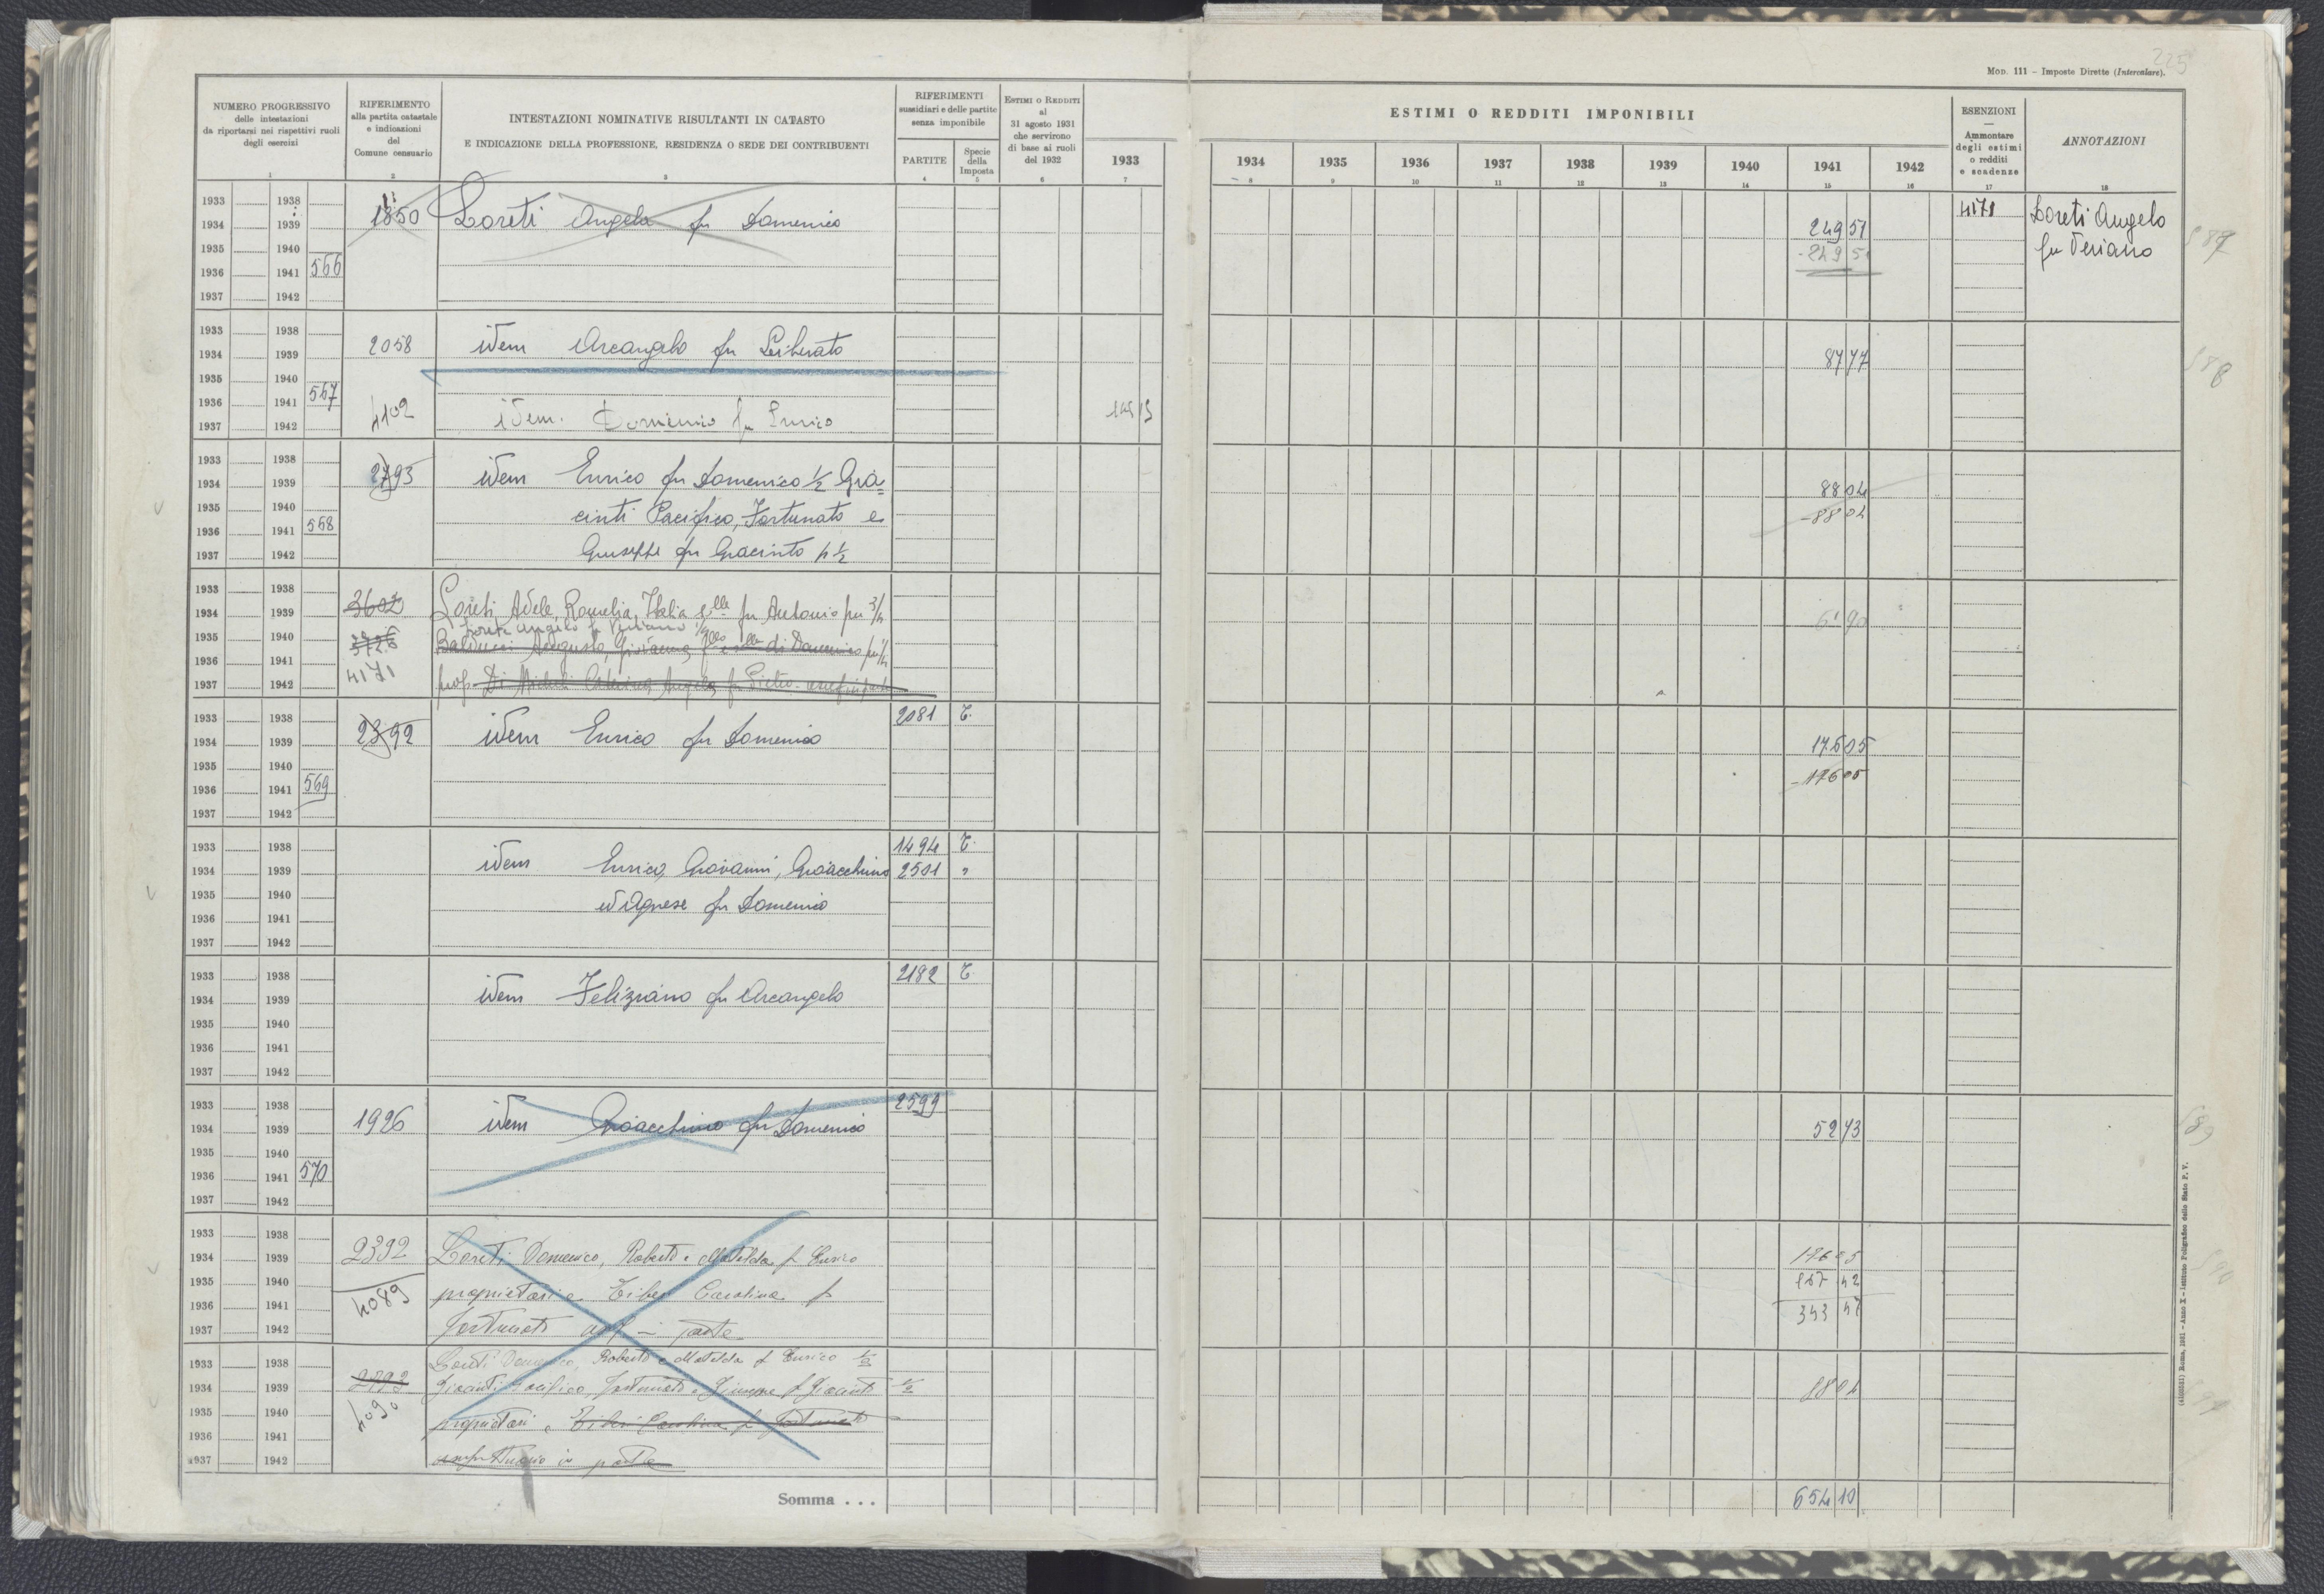 225
MOD. 111 – Imposte Dirette (Intercalare).
NUMERO PROGRESSIVO
delle intestazioni
da riportarsi nei rispettivi ruoli
degli esercizi
1
RIFERIMENTO
alla partita catastale
e indicazioni
del
Comune censuario
2
INTESTAZIONI NOMINATIVE RISULTANTI IN CATASTO
E INDICAZIONE DELLA PROFESSIONE, RESIDENZA O SEDE DEI CONTRIBUENTI
3
RIFERIMENTI
sussidiari e delle partite
senza imponibile
PARTITE
4
Specie
della
Imposta
5
ESTIMI O REDDITI
al
31 agosto 1931
che servirono
di base ai ruoli
del 1932
6
1933
7
ESTIMI O REDDITI IMPONIBILI
1934 1935 1936 1937 1938 1939 1940 1941 1942
8 9 10 11 12 13 14 15 16
ESENZIONI
—
Ammontare
degli estimi
o redditi
e scadenze
17
ANNOTAZIONI
18
1933 1938
1934 1939 1850 Loreti Angela fu Domenico 249 51 4171 Loreti Angelo
1935 1940 -249 51 fu Veriano
1936 1941 566
1937 1942
1933 1938
1934 1939 2058 idem Arcangelo fu Liberato 87 77 588
1935 1940
1936 1941 567
1937 1942 4102 idem. Domenico fu Enrico
1933 1938
1934 1939 2793 idem Enrico fu Domenico 1/2 Gia=
88 04
1935 1940 cinti Pacifico, Fortunato e
-88 04
1936 1941 568
1937 1942 Giuseppe fu Giacinto p 1/2
1933 1938
1934 1939 3602 Loreti Adele, Romelia, Italia s.lle fu Antonio per 3/4
6 90
Loreti Angelo fu Veriano
1935 1940 Balducci Augusto, Giovanna f.llo e s.lla di Domenico per 1/4
1936 1941 4171
1937 1942 prop. Di Micheli Caterina Angela fu Pietro usuf. in parte
1933 1938 2081 T.
1934 1939 2392 idem Enrico fu Domenico 176 05
1935 1940 -176 05
1936 1941 569
1937 1942
1933 1938 1494 T.
1934 1939 idem Enrico, Giovanni, Gioacchino 2501 "
1935 1940 ed Agnese fu Domenico
1936 1941
1937 1942
1933 1938 2182 T.
1934 1939 idem Feliziano fu Arcangelo
1935 1940
1936 1941
1937 1942
1933 1938 2599
1934 1939 1926 idem Gioacchino fu Domenico 52 73
1935 1940
1936 1941 570
1937 1942
1933 1938
1934 1939 2392 Loreti Domenico, Roberto e Matilda f Enrico 176 05
1935 1940 proprietari e Tiberi Carolina f 167 42
1936 1941 4089 343 47
1937 1942 Fortunato usuf in parte
1933 1938 Loreti Domenico, Roberto e Matilda f Enrico 1/2
1934 1939 2793 Giacinti Pacifico, Fortunato e Giuseppe f Giacinto 1/2 88 04
1935 1940 4090 proprietari e Tiberi Carolina f Fortunato
1936 1941
1937 1942 usufruttuario in parte
Somma . . . 654 10
(4100531) Roma, 1931 – Anno X – Istituto Poligrafico dello Stato P. V.